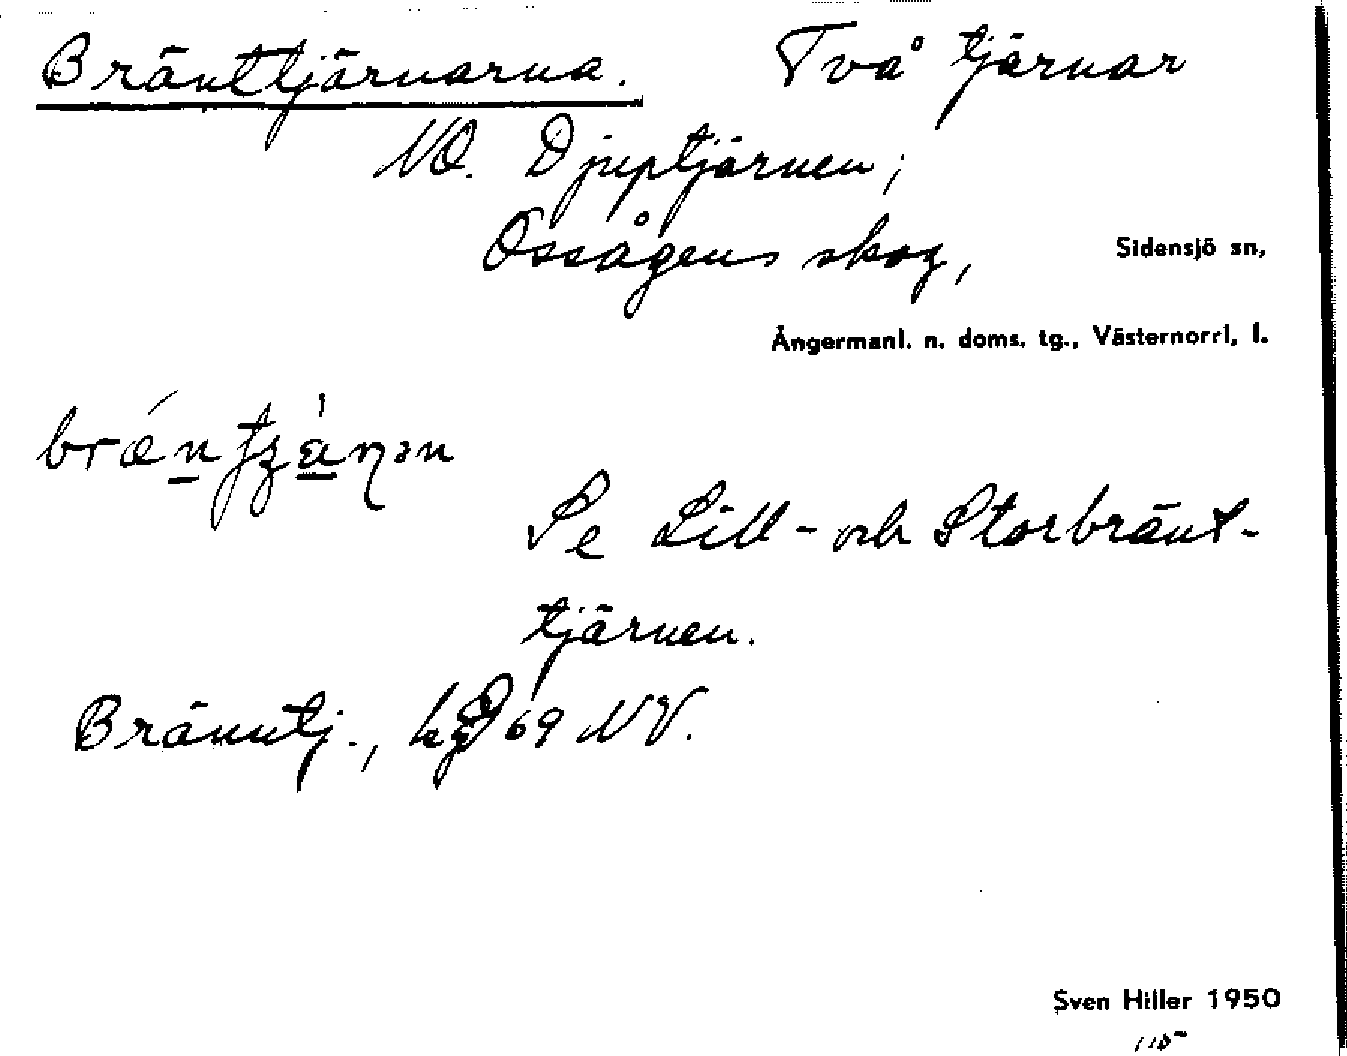 Bränttjärnarna. Två tjärnar
NO. Djuptjärnen;
Ossågens skog, Sidensjö sn,
Ångermanl. n. doms. tg., Västernorrl. l.
Se Lill- och Storbränt-
tjärnen.
Bränntj., 69 NV.
Sven Hiller 1950